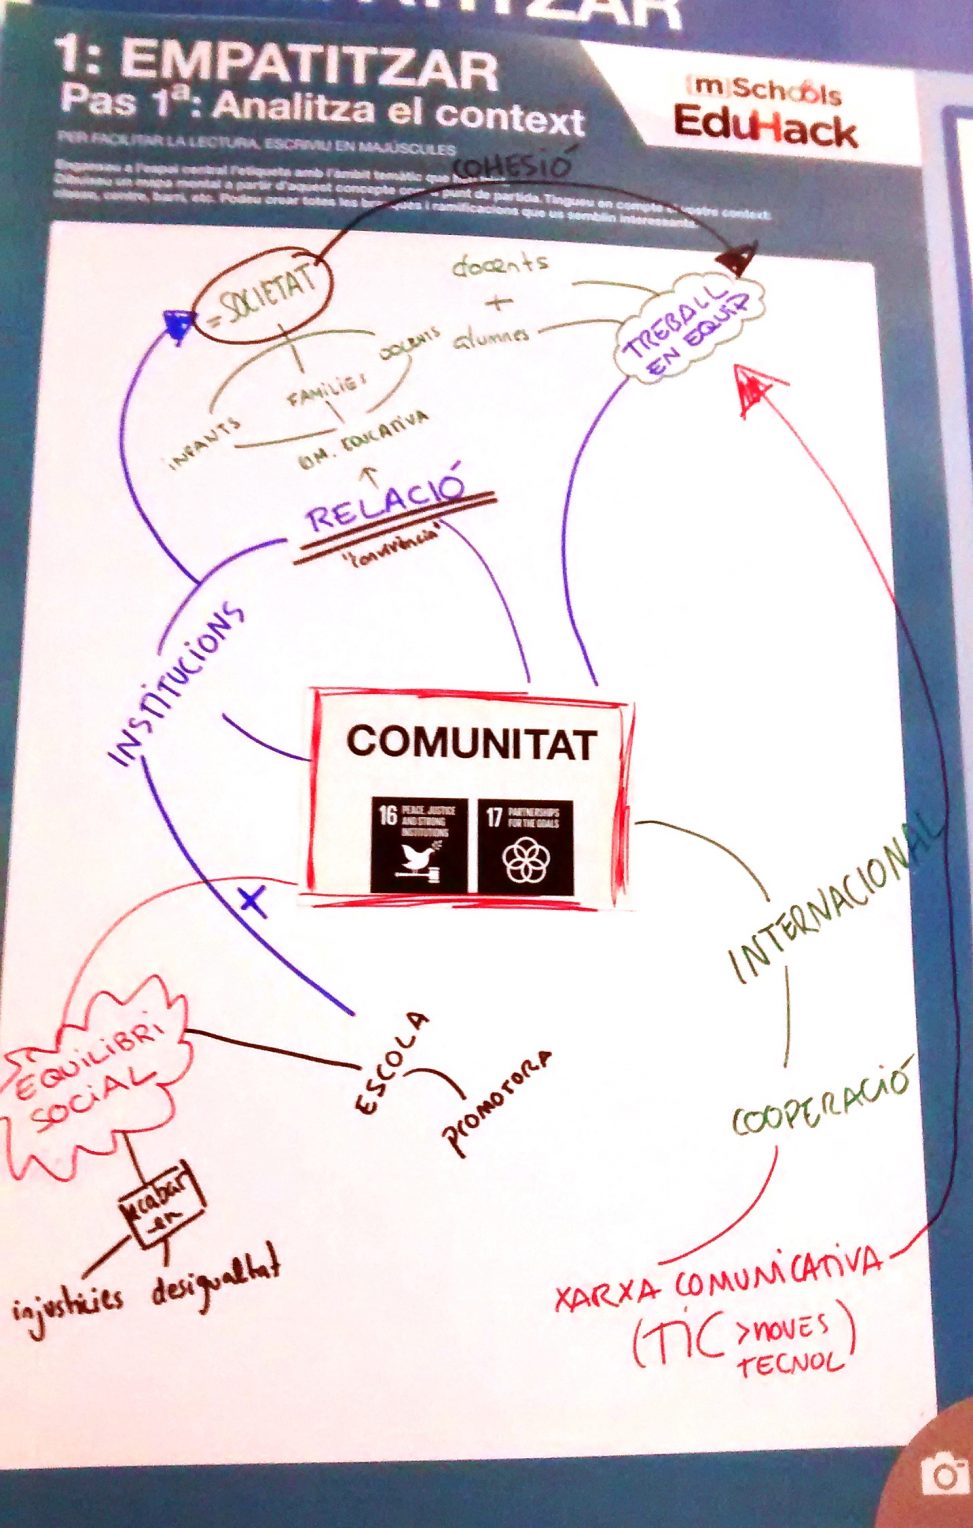 1: EMPATITZAR
Pas 1ª: Analitza el context
(m)Schools
EduHack
PER FACILITAR LA LECTURA, ESCRIVIU EN MAJÚSCULES
Enganxeu a l'espai central l'etiqueta amb l'àmbit temàtic que
Dibuixeu un mapa mental a partir d'aquest concepte com a punt de partida. Tingueu en compte el vostre context:
centre, barri, etc. Podeu crear totes les branques i ramificacions que us semblin interessants.
COHESIÓ
=SOCIETAT
docents
+
alumnes
TREBALL
EN EQUIP
DOCENTS
FAMÍLIES
INFANTS
COM. EDUCATIVA
RELACIÓ
"Convivència"
INSTITUCIONS
COMUNITAT
16 PEACE, JUSTICE
AND STRONG
INSTITUTIONS
17 PARTNERSHIPS
FOR THE GOALS
+
INTERNACIONAL
EQUILIBRI
SOCIAL
ESCOLA
PROMOTORA
COOPERACIÓ
acabar
en
injustícies desigualtat
XARXA COMUNICATIVA
(TIC >NOVES
TECNOL)